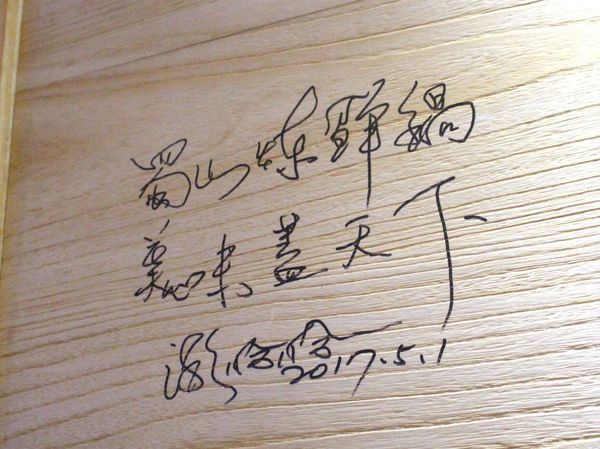 蜀山烤鲜锅
美味盖天下
2017.5.1